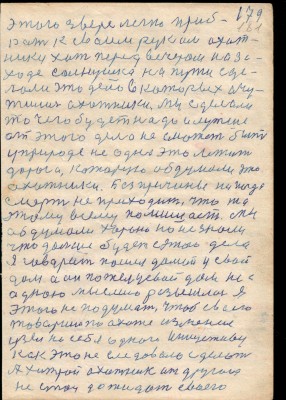 179
181
этого зверя легко приб-
рать к своим рукам охот-
ники хат перед вечером на за-
ходе солнушка на пути сде-
лали это дело в которых оху-
тники охотники. Мы сделали
то чего будет надо и лучше
от этого дела не сможет быть
у природе не одна эта лежит
дорога, которую обдумали эти
охотники. Без причины никогда
смерть не приходит, что то
этому всему помишает. Мы
обдумали хорошо но не знали
что дальше будет с этого дела
Я говорит пошел домой у свой
дом а он пожелуевай дом не с
одною мыслию розвелись Я
этого не подумал, чтоб своего
товарища по охоте изменою
узял на себя одного имущество
Как это не следовало сделать
А хитрой охотник ил другого
не стал дожидать своего